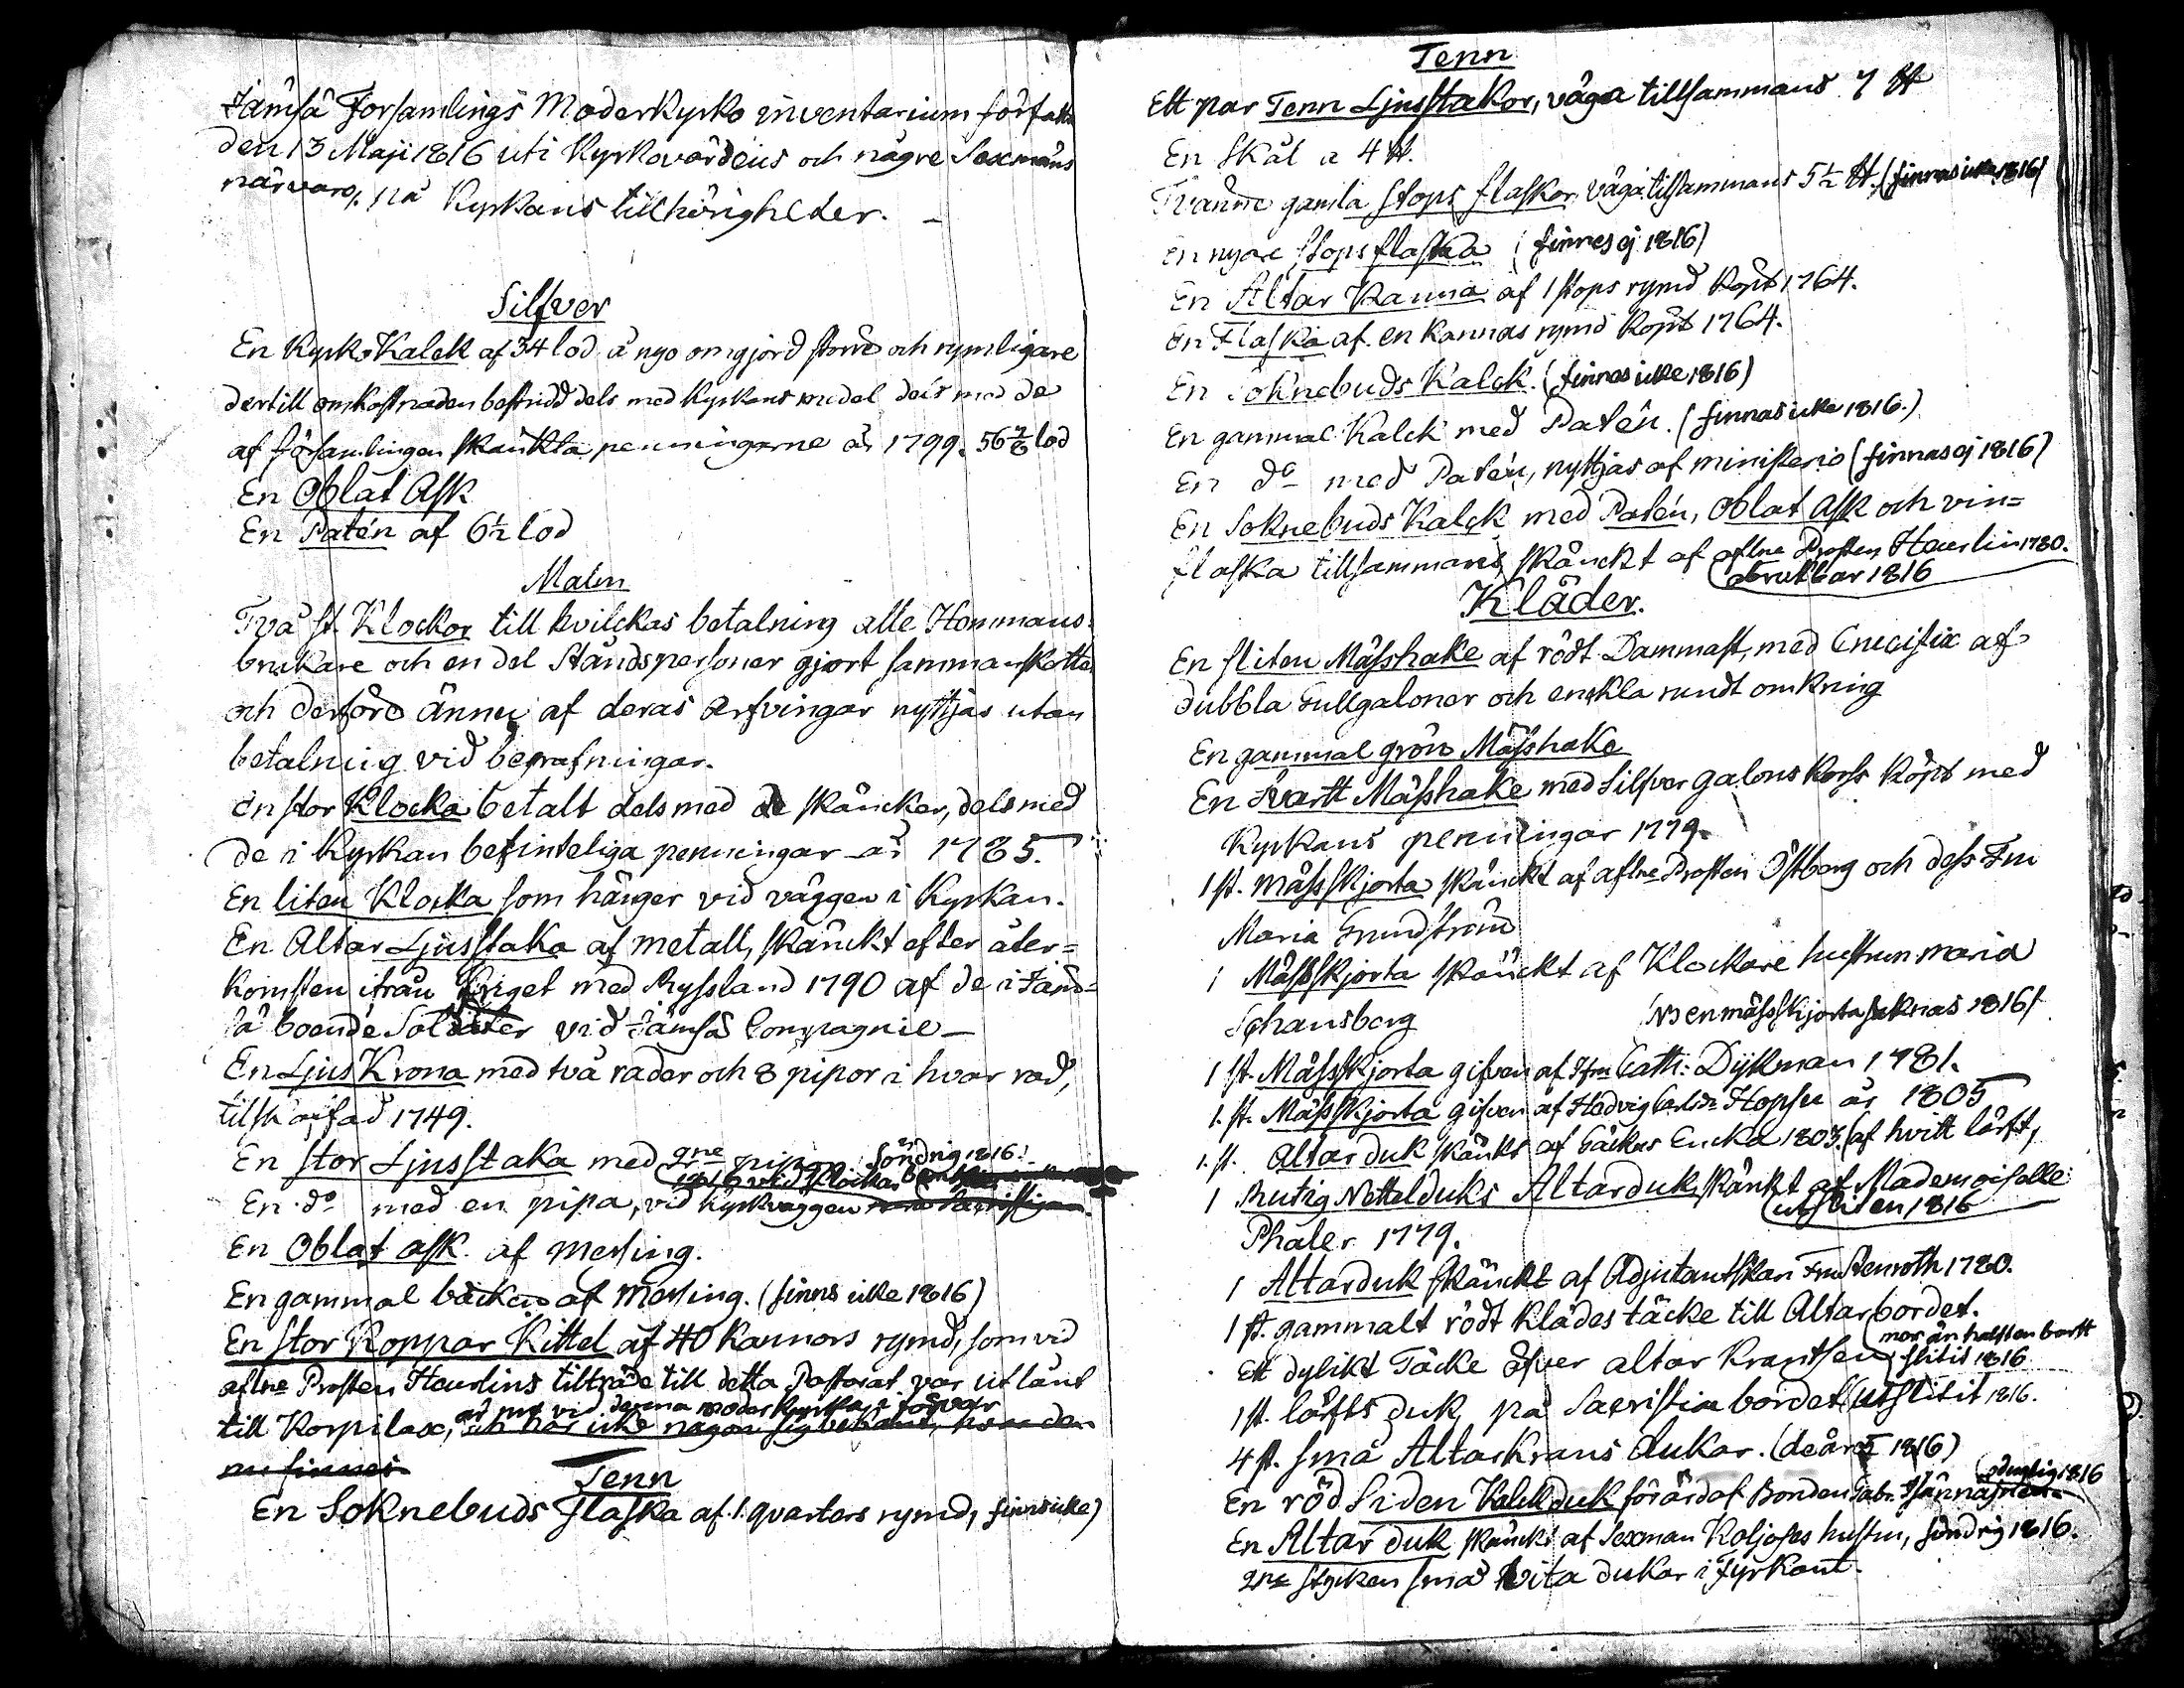 Jämsä Församlings Moderkyrko inventarium författ
den 13 Maji 1816 uti Kyrkovärdens och någre Sexmäns
närvaro, på Kyrkans tillhörigheter. -
Silfver
En Kyrko Kalck af 34 lod å nyo omgjord större och rymligare
dertill omkostnaden bestridd dels med Kyrkans medel dels med de
af församlingen skänkta penningarne år 1799. 56 7/8 lod
En Oblat Ask
En Patén af 6 1/2 lod
Malm
Två st. Klockor till hvilckas betalning alle Hemmans-
brukare och en del Ståndspersoner gjort sammanskotte
och derföre ännu af deras Arfvingar nyttjas utan
betalning vid begrafningar.
En stor Klocka betalt dels med de skäncker, dels med
de i Kyrkan befinteliga penningar år 1785.
En liten Klocka som hänger vid väggen i Kyrkan.
En Altar Ljusstaka af metall, skänckt efter åter=
komsten ifrån Kriget med Ryssland 1790 af de i Jäm=
sä boende Soldater vid Jämsä Compagnie -
En Ljus Krona med två rader och 8 pipor i hvar rad,
tilskaffad 1749.
En stor Ljusstaka med 9ne pipor Söndrig 1816.
1816 vid Klockar bänk
En do med en pipa, vid Kyrkväggen
En Oblat ask af Messing.
En gammal bäcken af Messing. (finns icke 1816)
En stor Koppar Kittel af 40 Kannors rymd, som vid
aflne Prosten Heurlins tillträde till detta Pastorat var utlänt
är nu vid denna moder Kyrka i förvar
till Korpilax, och har icke någon sig bekant, hvar den
nu finnes
Tenn
En Soknebuds Flaska af 1 quarters rymd, finns icke)
Tenn
Ett par Tenn Ljusstakor, väga tillsammans 7 ℔
En Skål a 4 ℔.
Tvänne gamla stops flaskor väga tillsammans 5 1/2 ℔. (finnas icke 1816)
En nyare stops flaska (finnes ej 1816)
En Altar Kanna af 1 stops rymd Köpt 1764.
En Flaska af en kannas rymd Köpt 1764.
En Soknebuds Kalck. (finnes icke 1816)
En gammal Kalck med Patén. (finnas icke 1816.)
En do med Patén, nyttjas af ministerio (finnas ej 1816)
En Soknebuds Kalck med Patén, Oblat Ask och vin=
flaska tillsammans skänckt af aflne Prosten Heurlin 1780.
obrukbar 1816
Kläder.
En sliten Mässhake af rödt Dammast, med Crucifix af
dubbla Gullgaloner och enckla rundt omkring
En gammal grön Mässhake
En Svartt Mässhake med Silfver galons Korss Köpt med
Kyrkans penningar 1779.
1 st. Mässskjorta skänckt af aflne Prosten Östberg och dess Fru
Maria Grundström
1 Mässskjorta skänckt af Klockare hustrun Maria
Johansberg (NB en mässskjorta saknas 1816)
1 st. Mässskjorta gifven af Cath: Dykman 1781.
1. st. Mässskjorta gifven af Hedvig Hopsu år 1805
1. st. Altarduk skänkt af Encka 1803. (af hvitt lärft,
1 Rutig Netteldukss Altarduk skänkt af Mademoiselle
utsliten 1816
Phaler 1779.
1 Altarduk skänckt af Adjutantskan Fru Stenroth 1780.
1 st. gammalt rödt Klädes täcke till Altarbordet.
mer än halften bortt
Ett dylikt Täcke öfver altar Krantsen slitit 1816
1 st. lärfts duk på Sacristia bordet (utslitit 1816.
4 st. små Altarkrans dukar. (de är 5 1816)
odugelig 1816
En röd Siden Kalckduk förärd af Bonden Gabr.
En Altar duk skänckt af Sexman Koljoses hustru, söndrig 1816.
2ne stycken små hvita dukar i fyrkant.